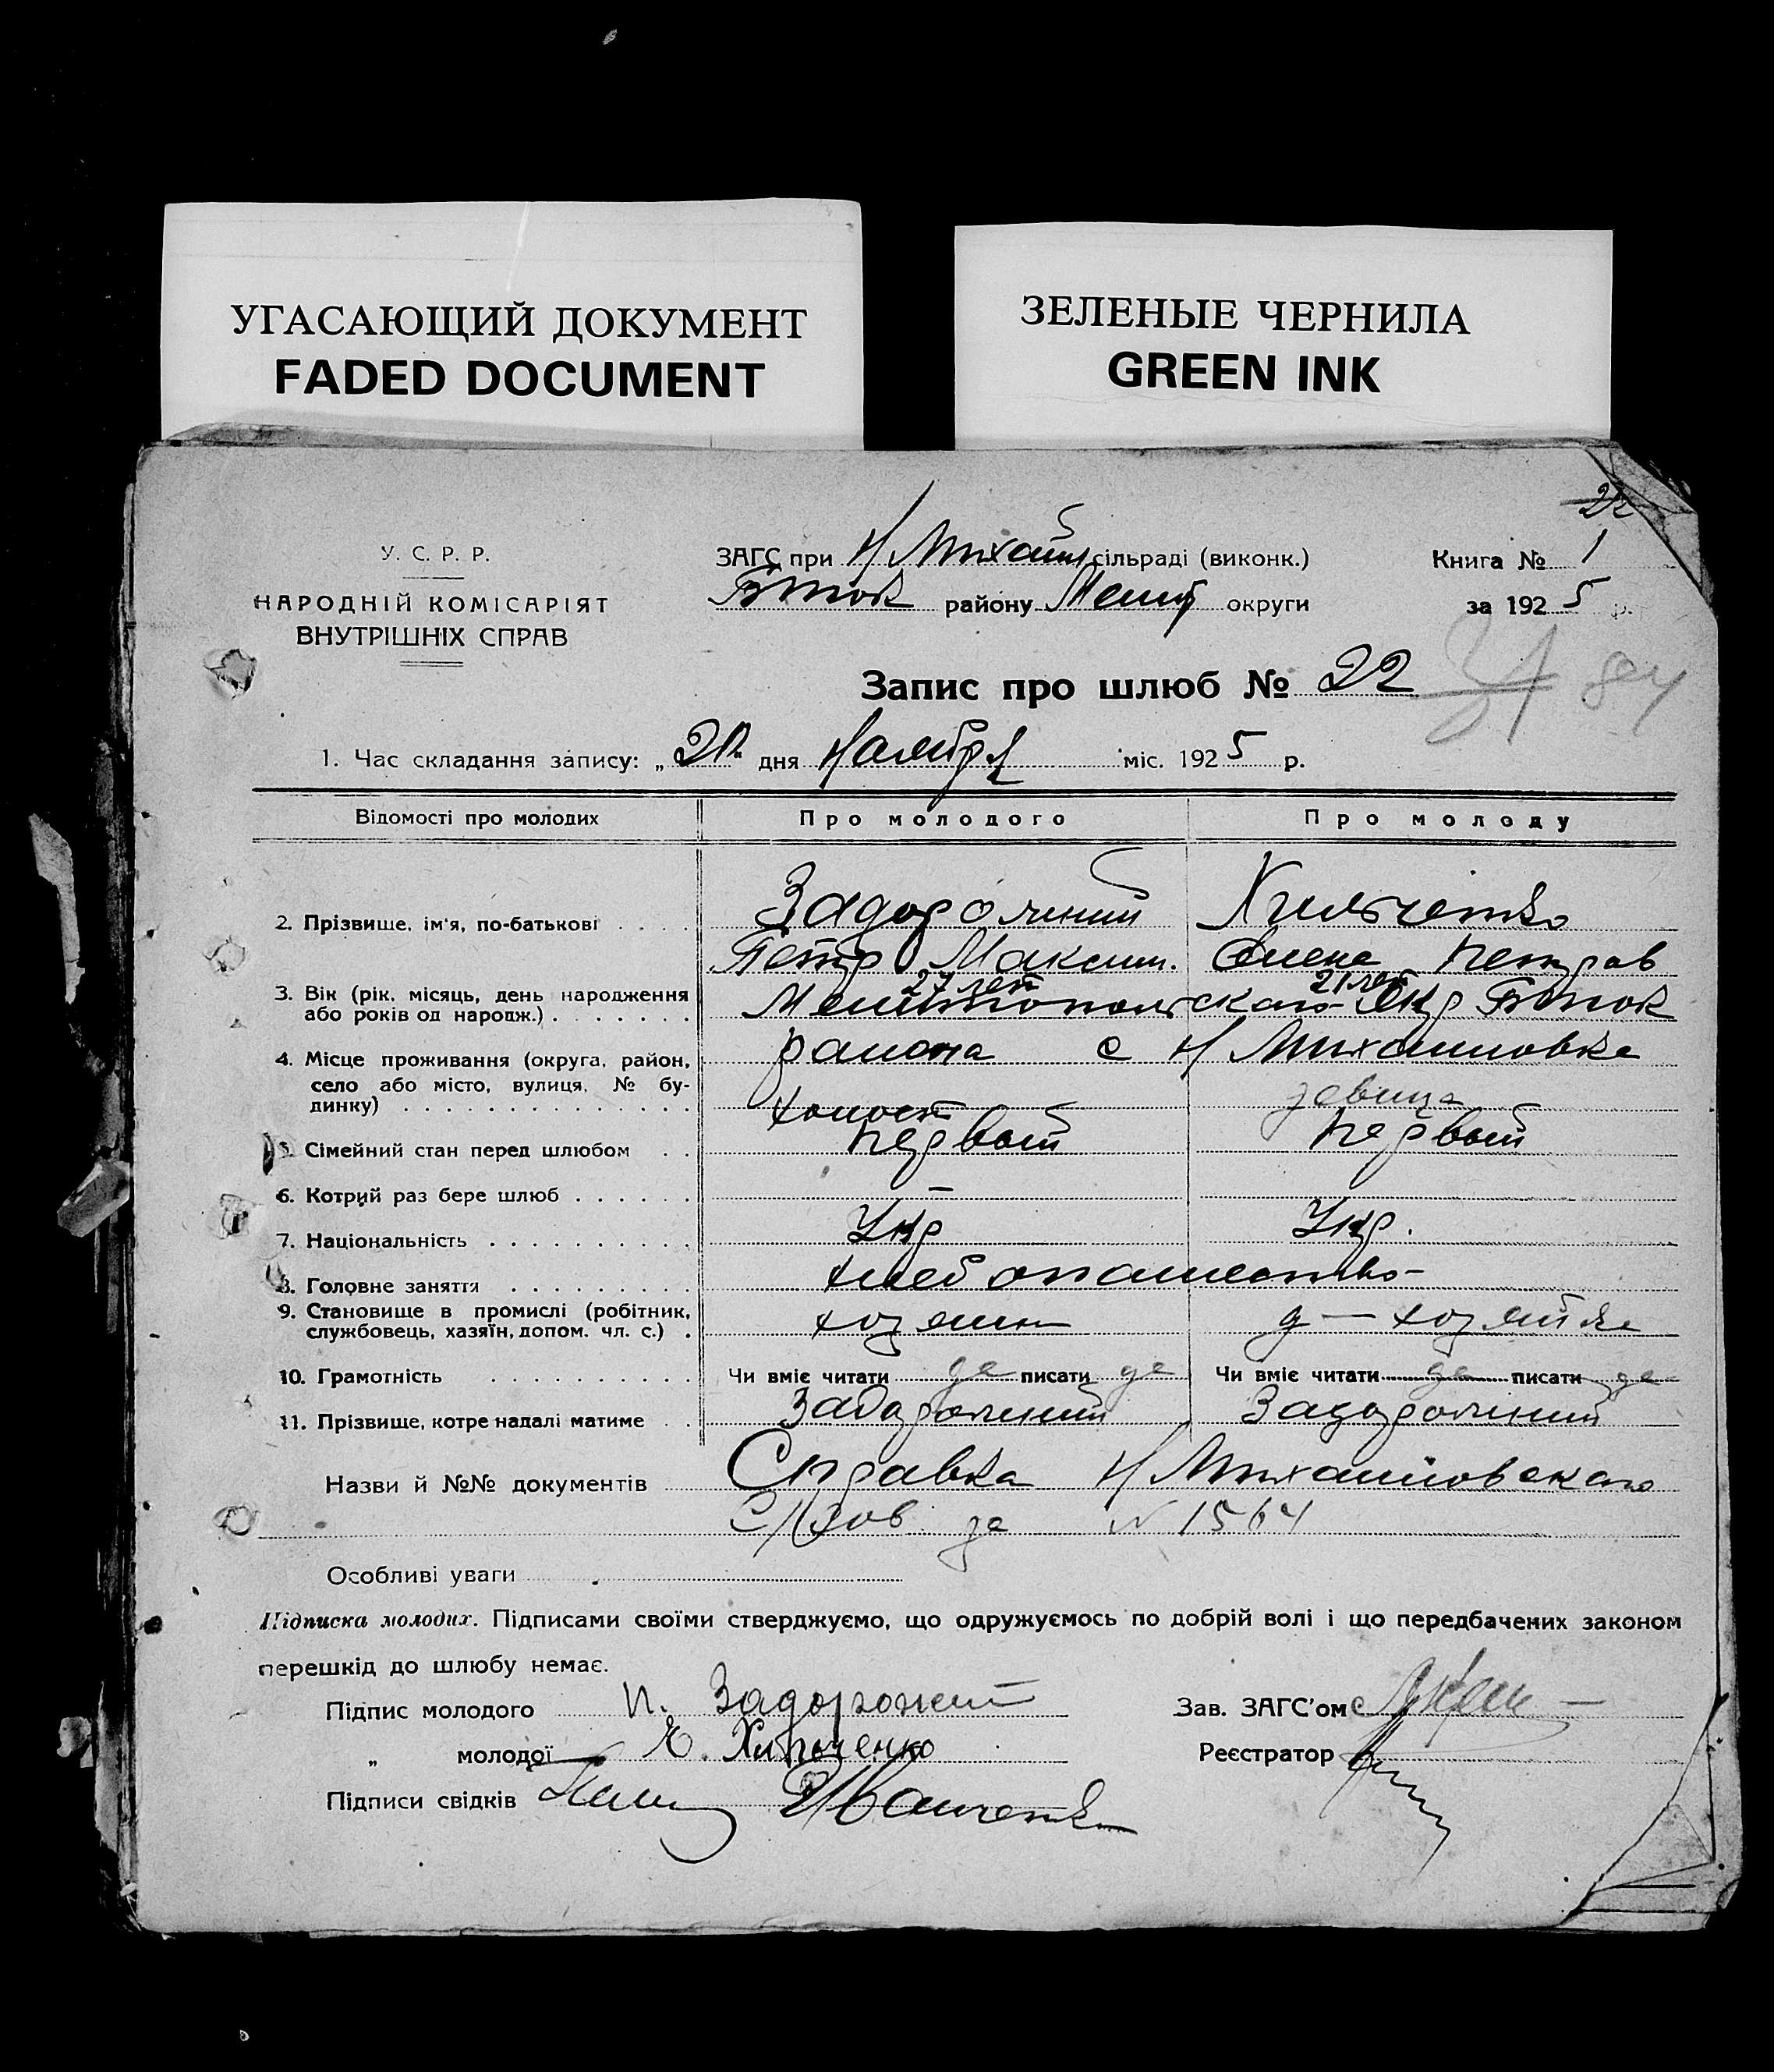 УГАСАЮЩИЙ ДОКУМЕНТ
FADED DOCUMENT
ЗЕЛЕНЫЕ ЧЕРНИЛА
GREEN INK
22
У. С. Р. Р.
НАРОДНІЙ КОМІСАРІЯТ
ВНУТРІШНІХ СПРАВ
ЗАГС при Н Михайл сільраді (виконк.)
Бток району Мелит округи
Книга № 1
за 1925 р.
Запис про шлюб № 22
84
1. Час складання запису: „ дня Ноября міс. 1925 р.
Відомості про молодих Про молодого Про молоду
2. Прізвище, ім'я, по-батькові . . . . Задорожний Хильченко
Петр Максим. Елена Петров
27 лет 21 лет
3. Вік (рік, місяць, день народження або років од народж.) . . . . . . . Мелитопольского Окр Бток
4. Місце проживання (округа, район, село або місто, вулиця, № будинку) . . . . . . . . . . . . . . района с Н Михайловка
холост девица
5. Сімейний стан перед шлюбом . . первый первый
6. Котрий раз бере шлюб . . . . . . –
7. Національність . . . . . . . . . . Укр Укр.
8. Головне заняття . . . . . . . . . хлебопашество
9. Становище в промислі (робітник, службовець, хазяїн, допом. чл. с.) . хозяин д — хозяйка
10. Грамотність . . . . . . . . . . Чи вміє читати да писати да Чи вміє читати да писати да
11. Прізвище, котре надалі матиме . . Задорожний Задорожний
Назви й №№ документів Справка Н Михайловского
С/Сов за № 1564
Особливі уваги
Підписка молодих. Підписами своїми стверджуємо, що одружуємось по добрій волі і що передбачених законом
перешкід до шлюбу немає.
Підпис молодого П. Задорожний
„ молодої Е. Хильченко
Підписи свідків Иванченко
Зав. ЗАГС'ом
Реєстратор